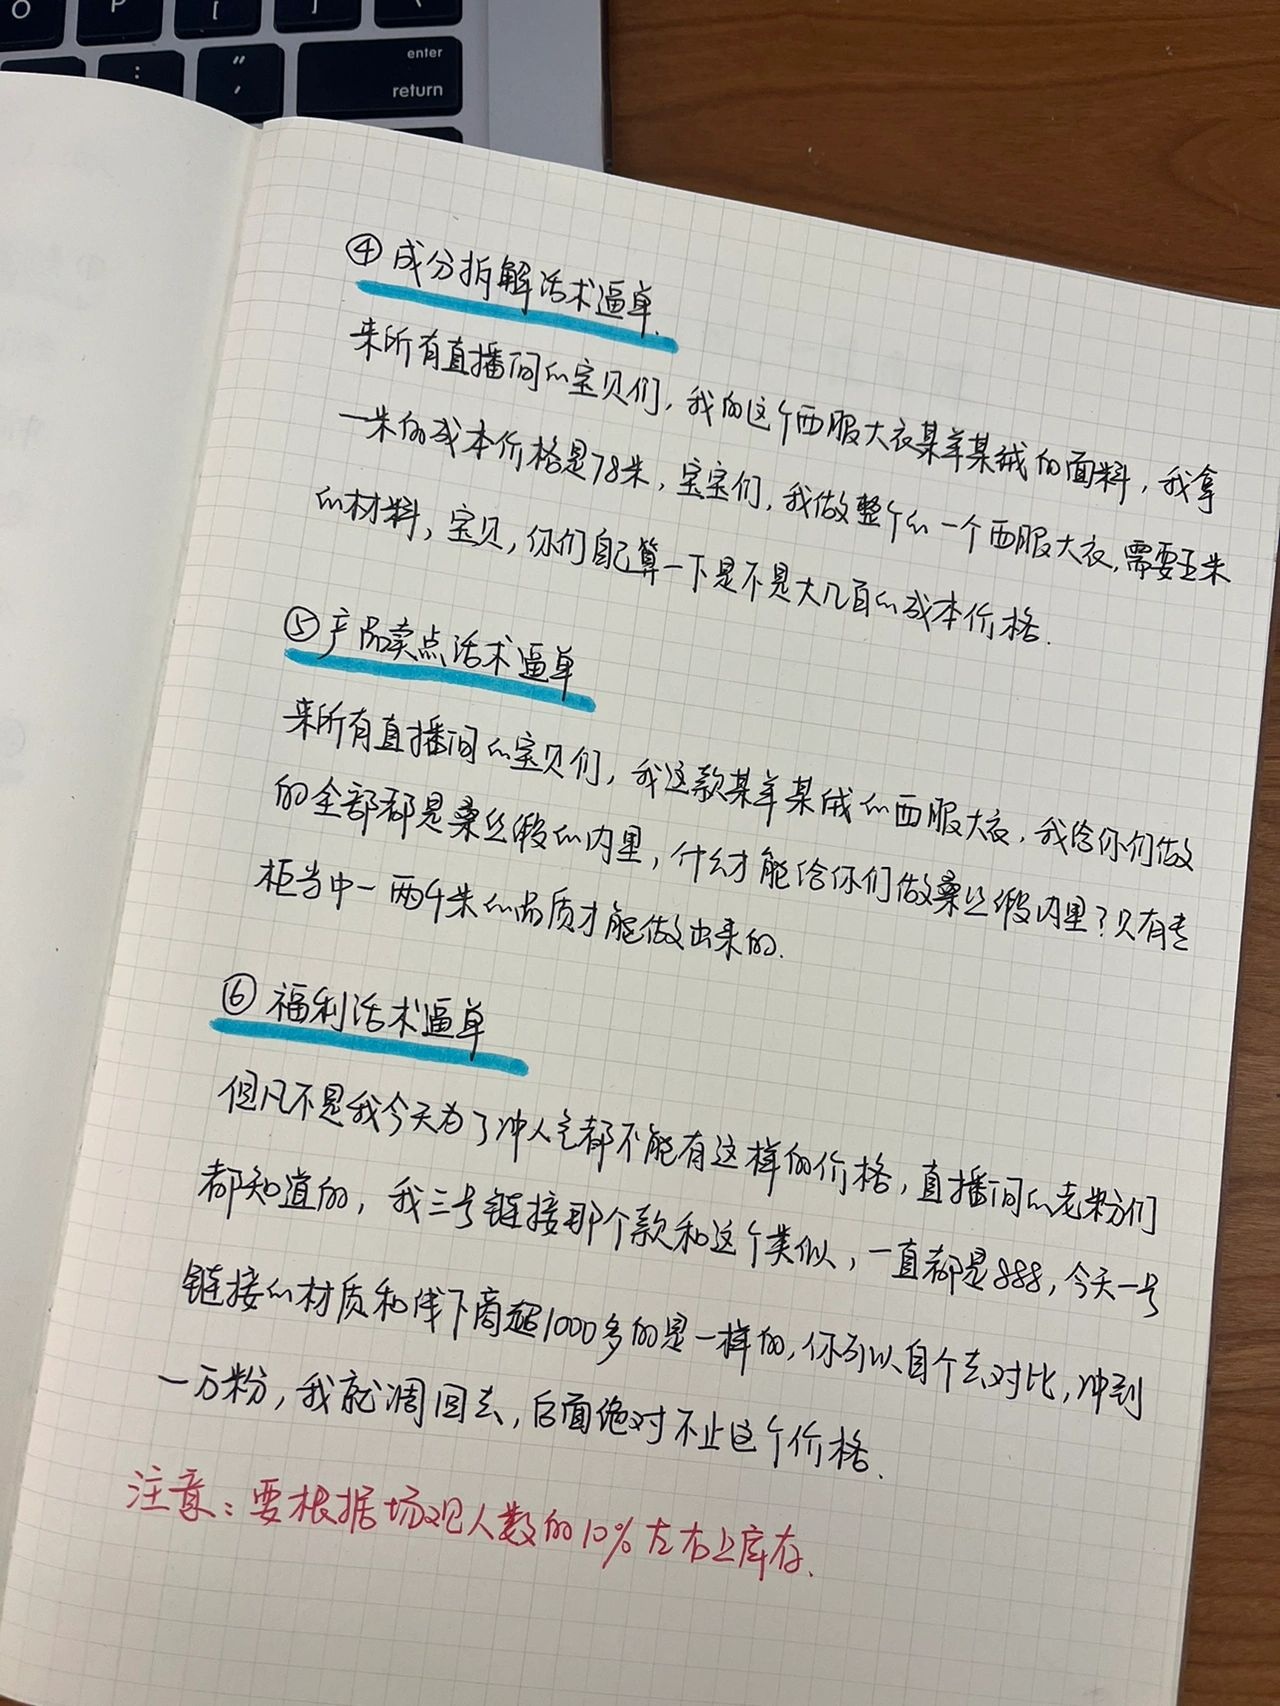 O
P
{
[
}
]
|
\
:
;
"
'
enter
return
④成分拆解话术逼单.
来所有直播间的宝贝们,我的这个西服大衣某羊某绒的面料,我拿
一米的成本价格是78米,宝宝们,我做整个的一个西服大衣,需要五米
的材料,宝贝,你们自己算一下是不是大几百的成本价格.
⑤产品卖点话术逼单
来所有直播间的宝贝们,我这款某羊某绒的西服大衣,我给你们做
的全部都是桑丝缎的内里,什么才能给你们做桑丝缎内里?只有专
柜当中一两千米的品质才能做出来的.
⑥福利话术逼单
但凡不是我今天为了冲人气都不能有这样的价格,直播间的老粉们
都知道的,我三号链接那个款和这个类似,一直都是888,今天一号
链接的材质和线下商超1000多的是一样的,你可以自个去对比,冲到
一万粉,我就调回去,后面绝对不止这个价格.
注意:要根据场观人数的10%左右上库存.